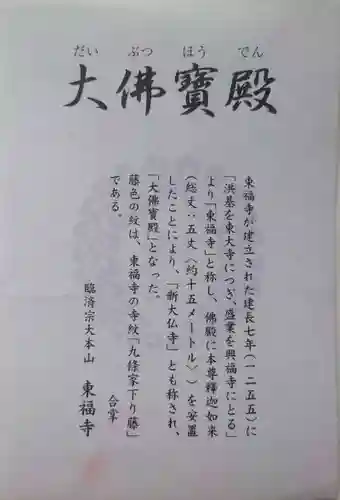 だい ぶつ ほう でん
大佛寳殿
東福寺が建立された建長七年(一二五五)に
「洪基を東大寺につぎ、盛業を興福寺にとる」
より「東福寺」と称し、佛殿に本尊釋迦如来
(総丈：五丈〈約十五メートル〉)を安置
したことにより、「新大仏寺」とも称され、
「大佛寳殿」となった。
藤色の紋は、東福寺の寺紋「九條家下り藤」
である。
合掌
臨済宗大本山 東福寺